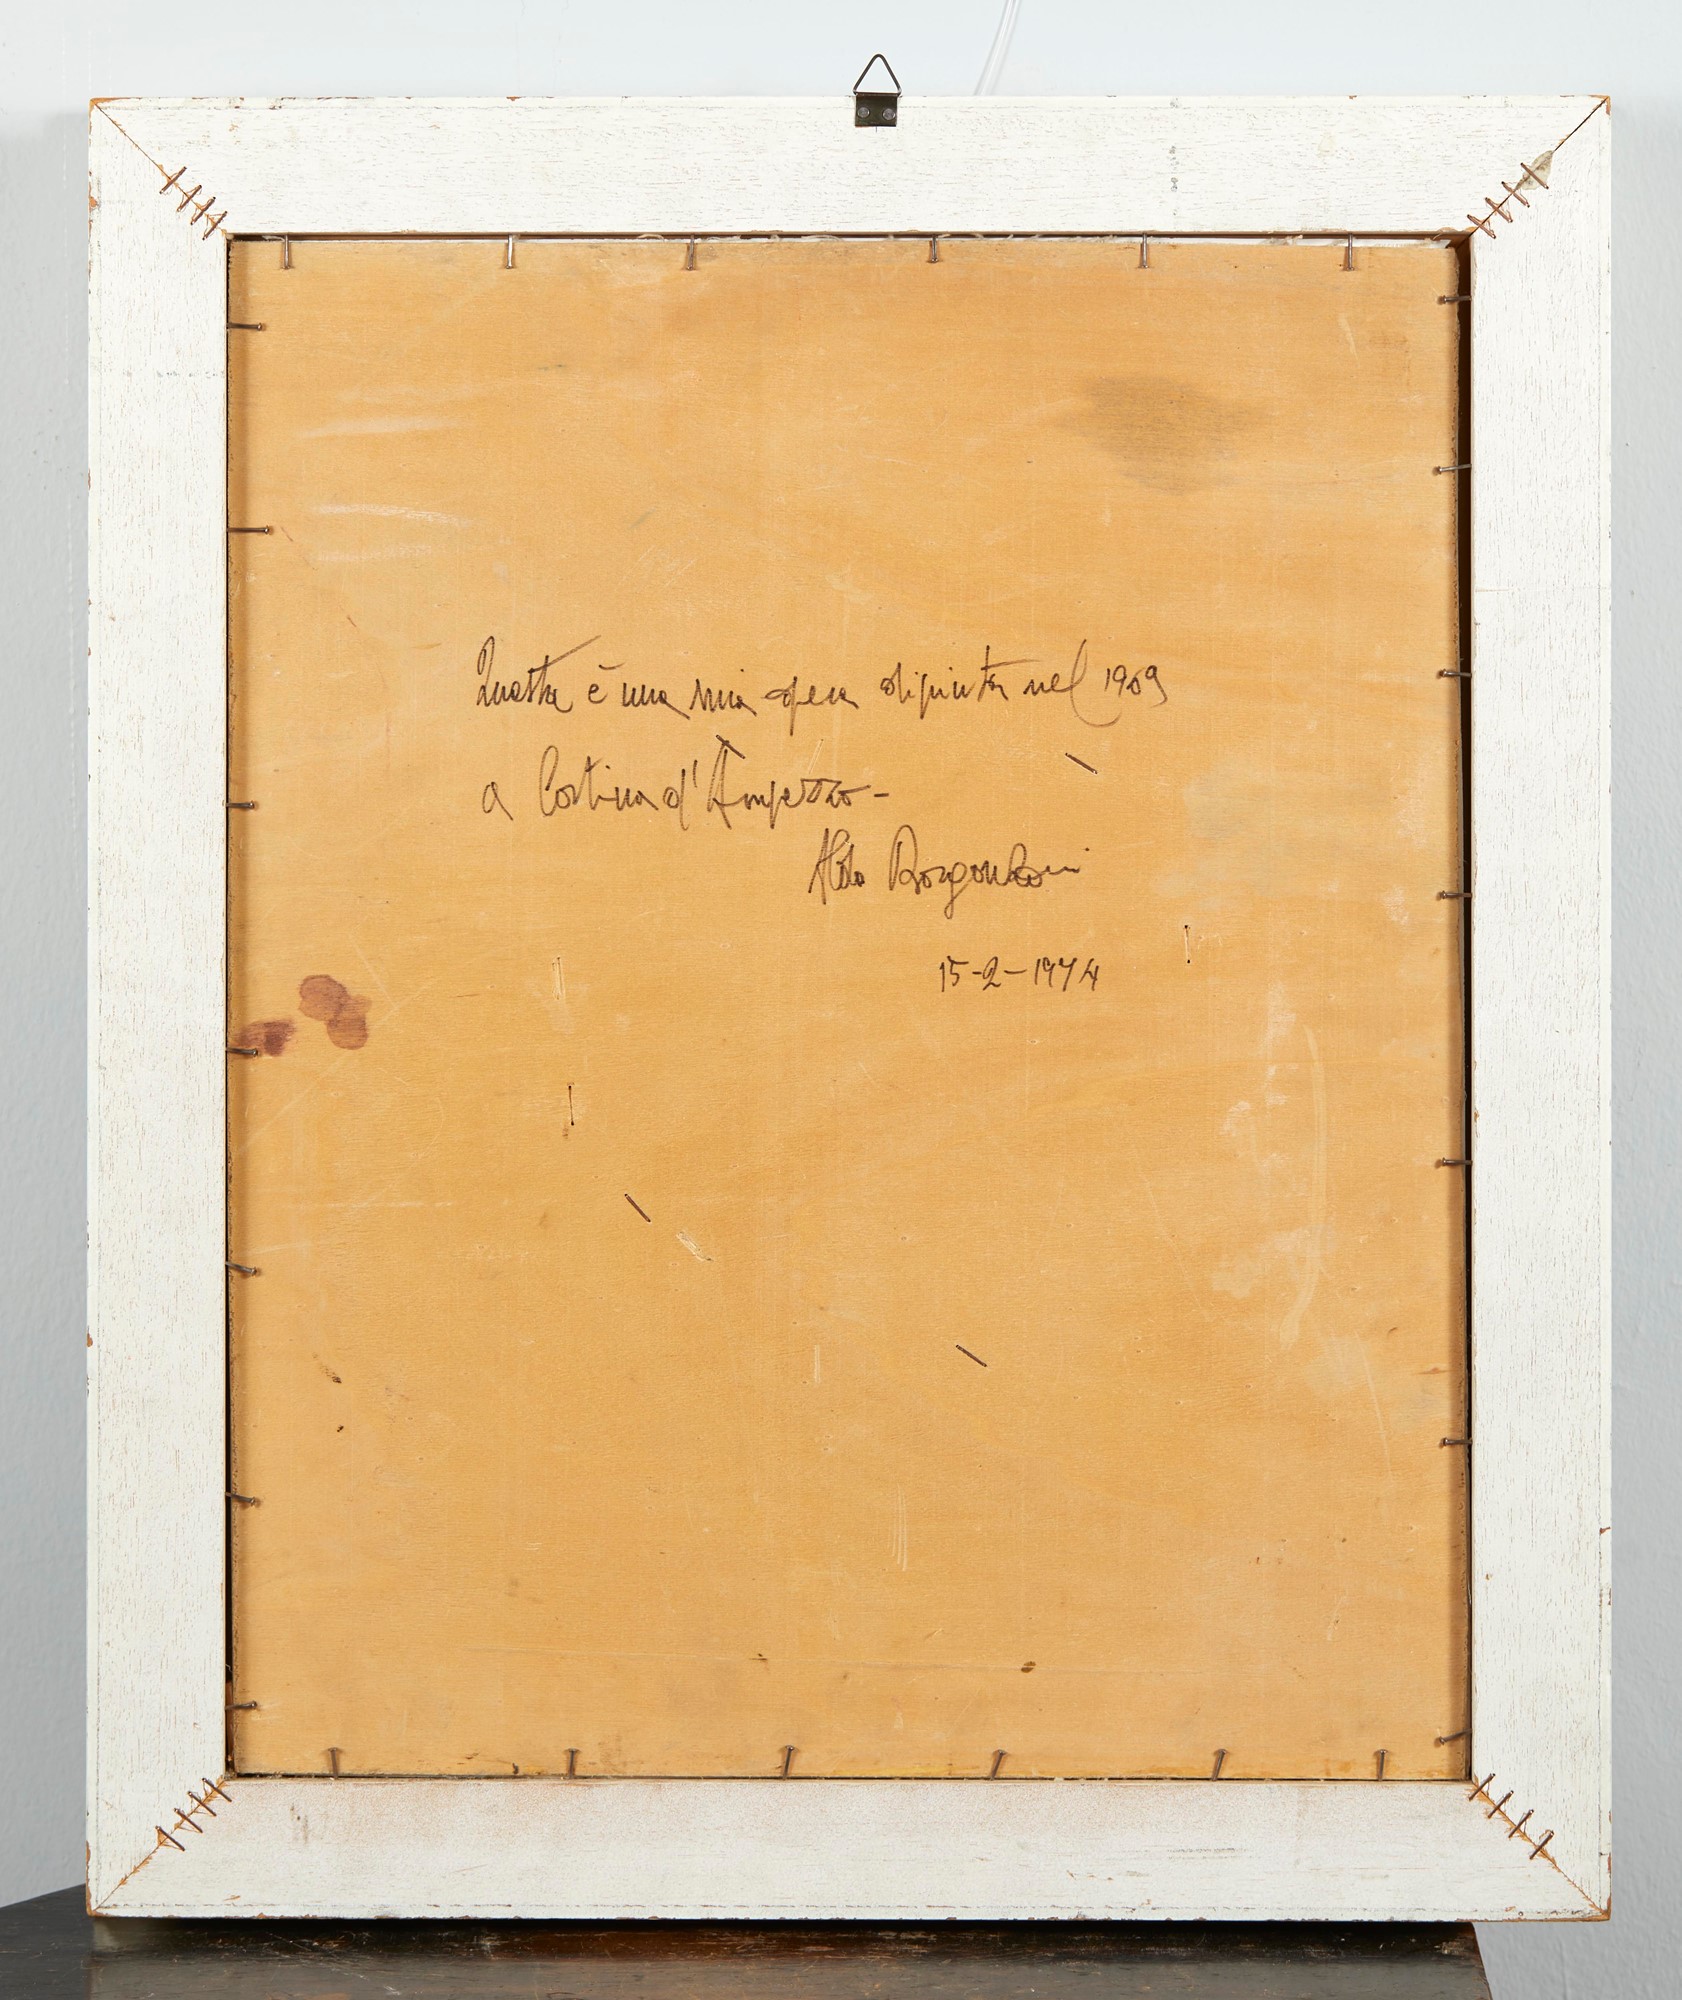 Questa è una mia opera dipinta nel 1969
a Cortina d'Ampezzo -
Aldo Borgonzoni
15-2-1974